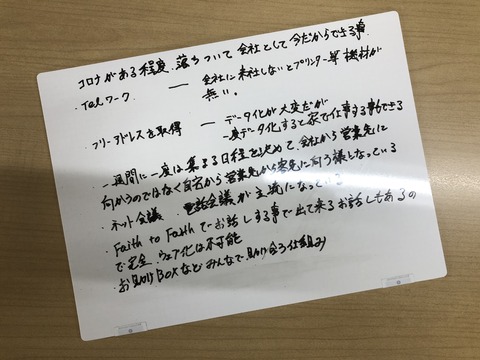 コロナがある程度、落ちついて会社として今だからできる事
・Telワーク ― 会社に来社しないとプリンター等 機材が
無い。
・フリーアドレスを取得 ― データ化が大変だが
一度データ化すると家で仕事する事ができる
・一週間に一度は集まる日程を決めて、会社から営業先に
向かうのではなく自宅から営業先から客先に向う様になっている
・ネット会議、電話会議が主流になっている
・Faith to Faithでお話しする事で出て来るお話しもあるの
で完全ウェブ化は不可能
・お助けBOXなどみんなで助け合う仕組み